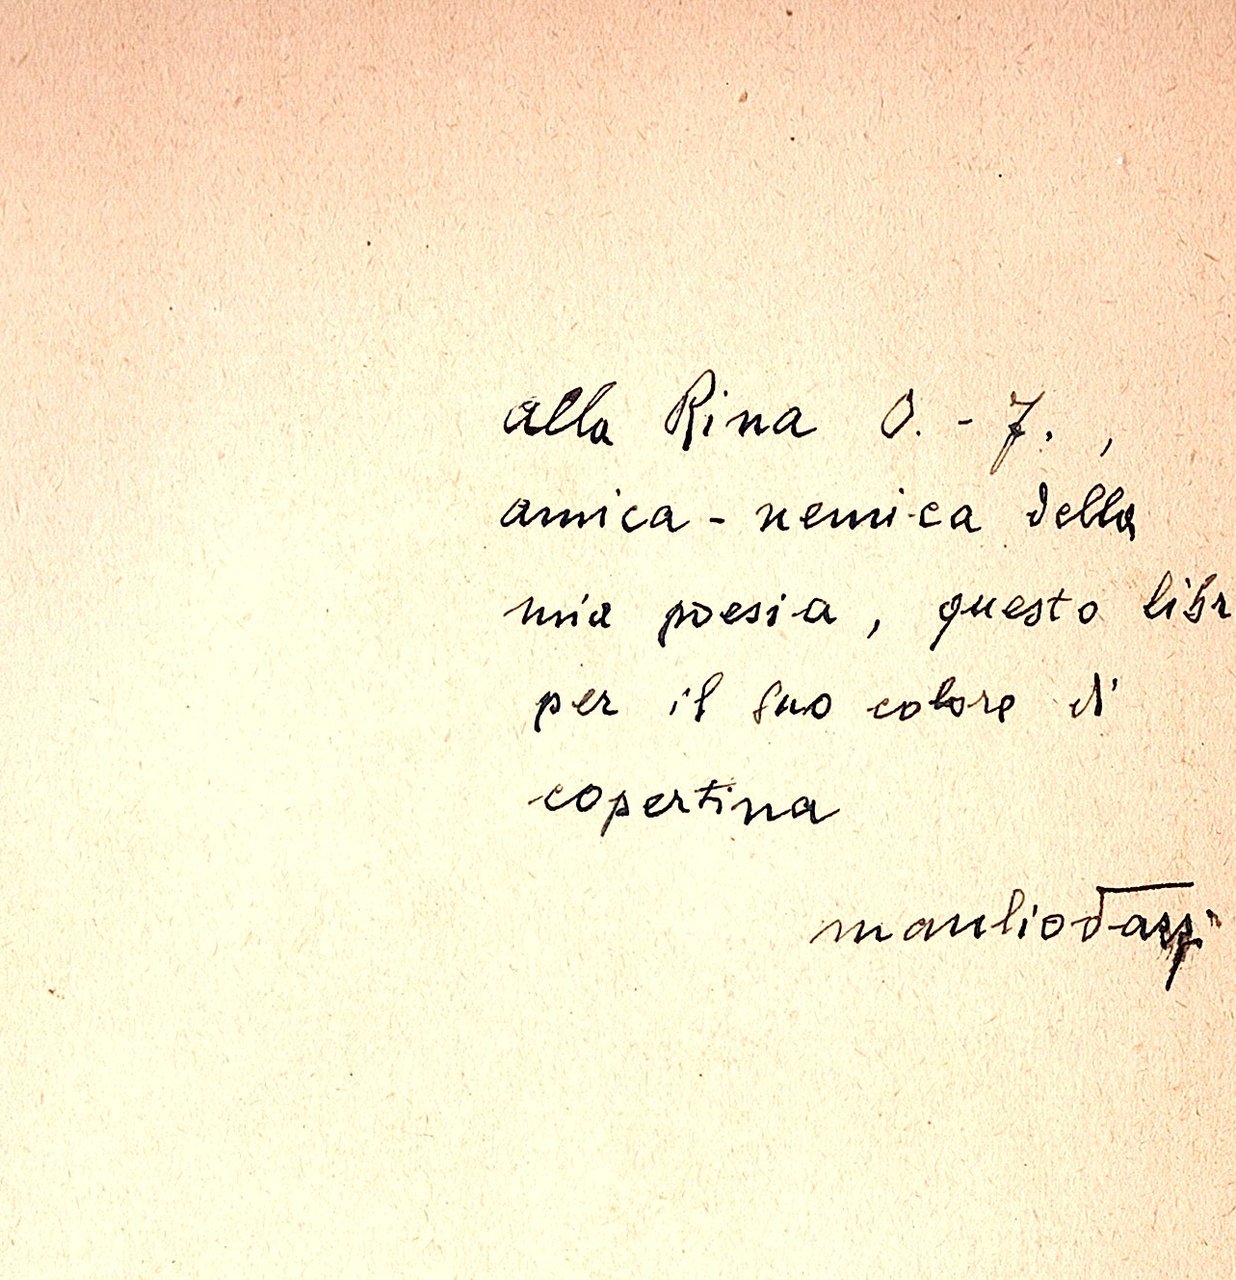 alla Rina O. - Z. ,
amica - nemica della
mia poesia , questo libr
per il suo colore di
copertina
manlio Dazzi